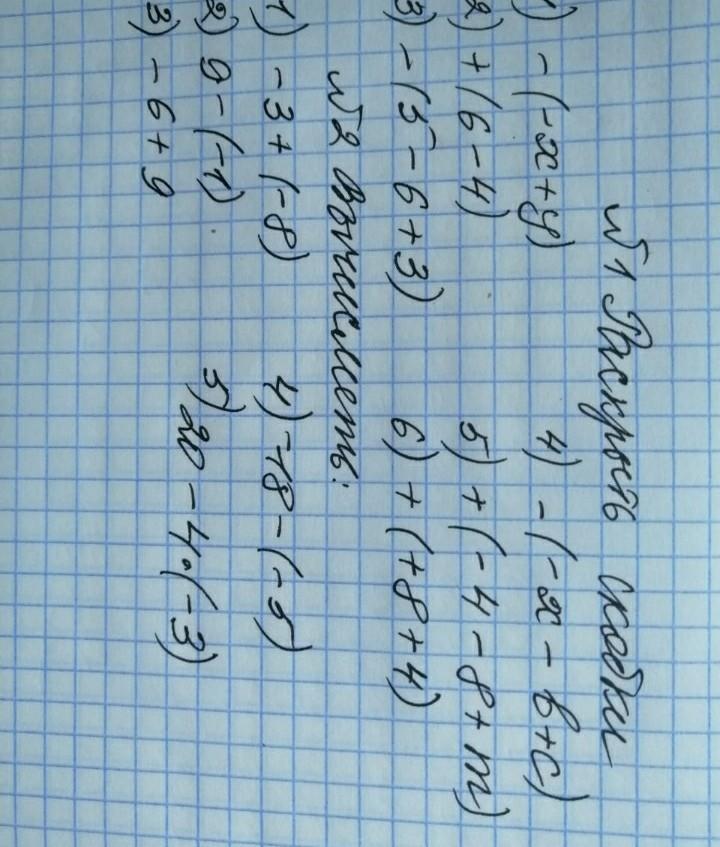 №1 Раскрыть скобки
1) -(-x+y) 4) -(-x-b+c)
2) +(6-4) 5) +(-4-8+m)
3) -(5-6+3) 6) +(+8+4)
№2 Вычислить:
1) -3+(-8) 4) -18-(-5)
2) 9-(-1) 5) 20-4·(-3)
3) -6+9